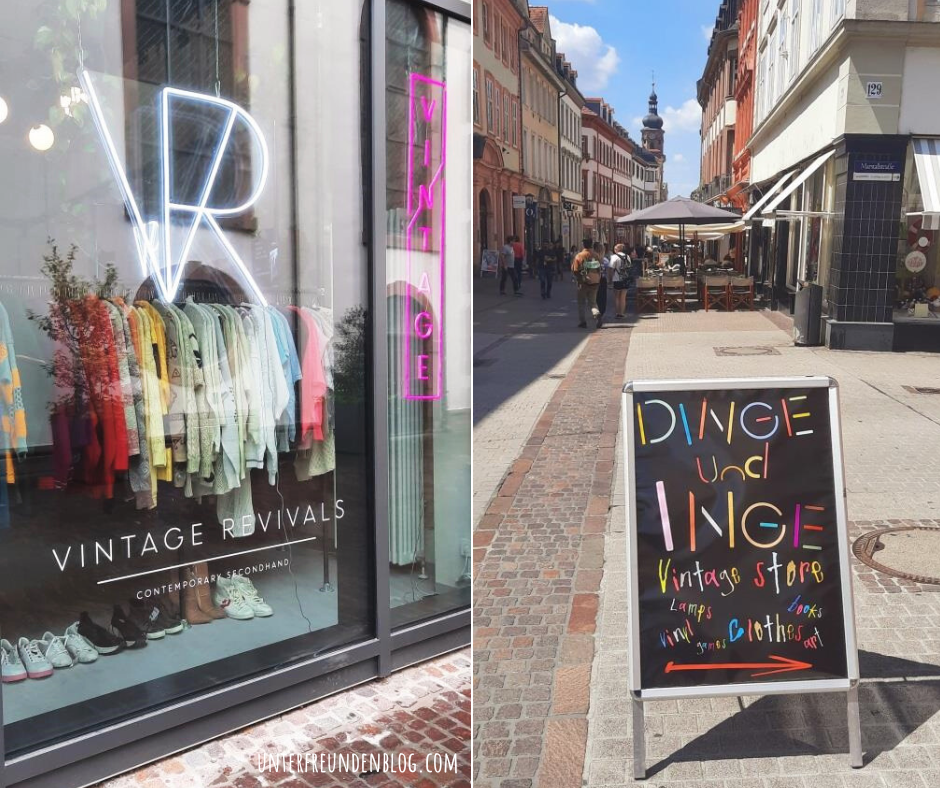 VR
VINTAGE
VINTAGE REVIVALS
CONTEMPORARY SECONDHAND
UNTERFREUNDENBLOG.COM
129
DINGE
und
INGE
Vintage store
Lamps books
vinyl games Clothes art